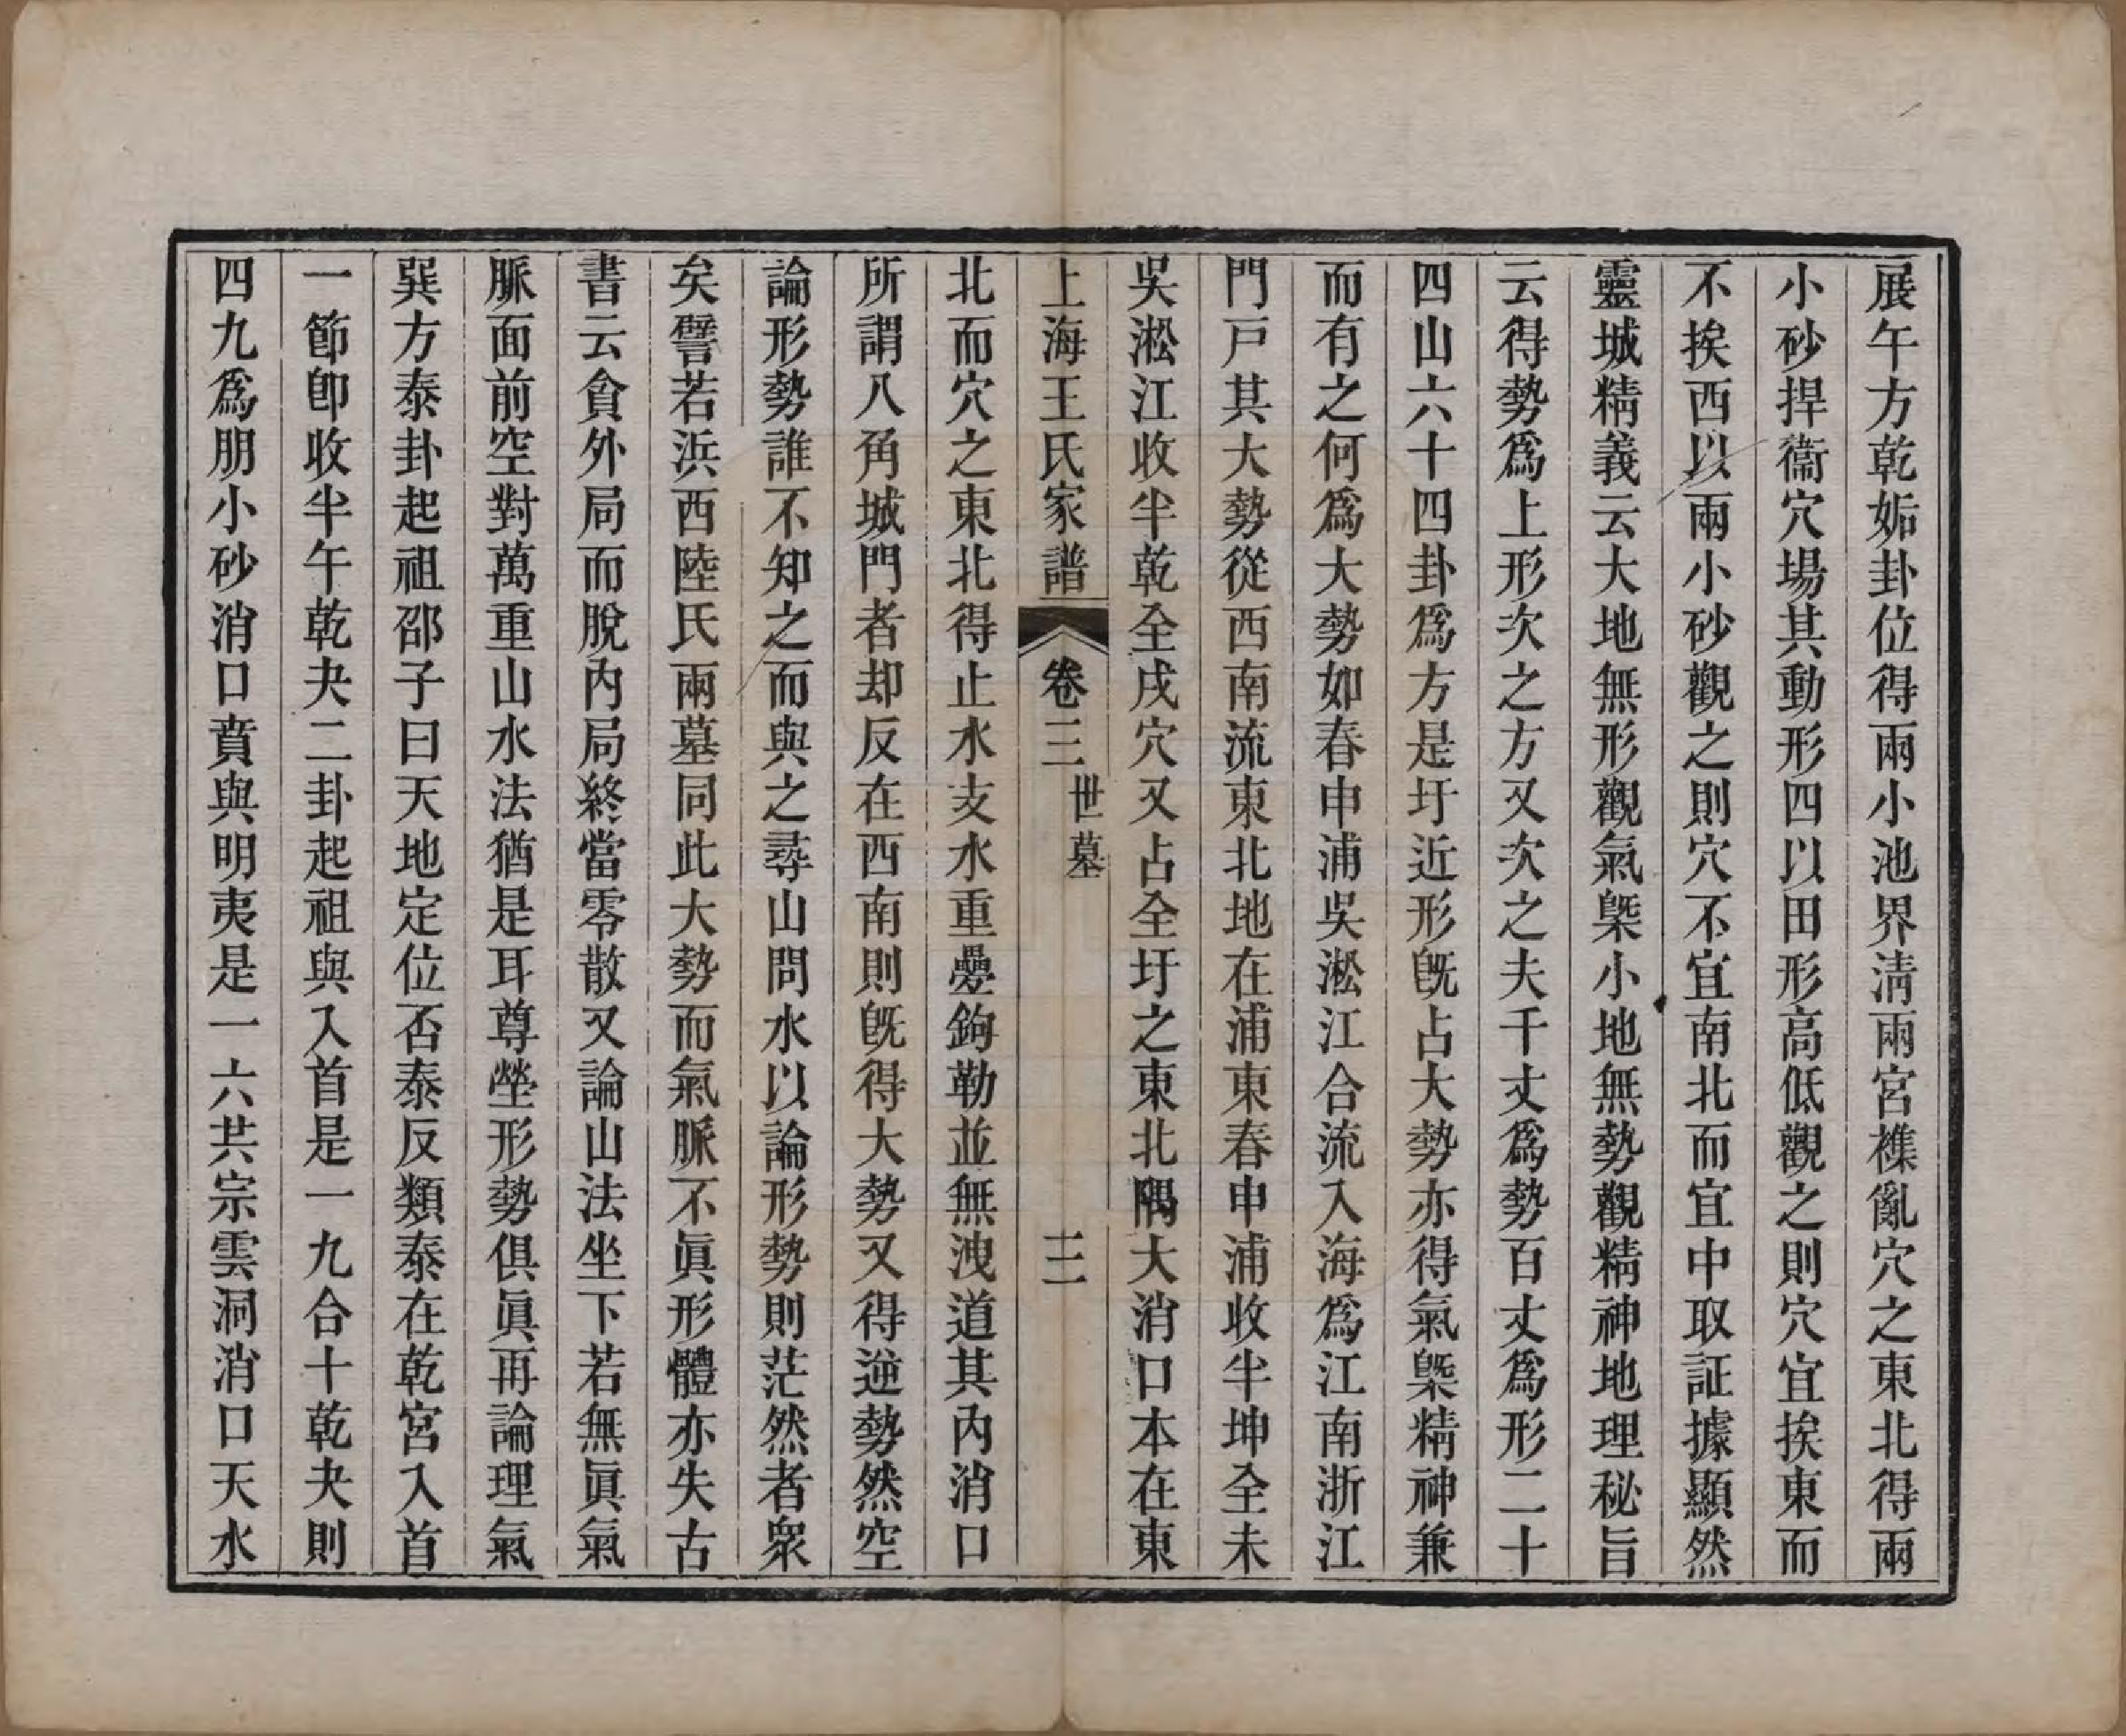 展午方乾姤卦位得兩小池界淸兩宮襍亂穴之東北得兩
小砂捍衞穴場其動形四以田形高低觀之則穴宜挨東而
不挨西以兩小砂觀之則穴不宜南北而宜中取証據顯然
靈城精義云大地無形觀氣槩小地無勢觀精神地理秘旨
云得勢爲上形次之方又次之夫千丈爲勢百丈爲形二十
四山六十四卦爲方是圩近形旣占大勢亦得氣槩精神兼
而有之何爲大勢如春申浦吳淞江合流入海爲江南浙江
門戸其大勢從西南流東北地在浦東春申浦收半坤全未
吳淞江收半乾全戌穴又占全圩之東北隅大消口本在東
上海王氏家譜
卷三
世墓
三
北而穴之東北得止水支水重疊鉤勒並無洩道其內消口
所謂八角城門者却反在西南則旣得大勢又得逆勢然空
論形勢誰不知之而與之尋山問水以論形勢則茫然者衆
矣譬若浜西陸氏兩墓同此大勢而氣脈不眞形體亦失古
書云貪外局而脫內局終當零散又論山法坐下若無眞氣
脈面前空對萬重山水法猶是耳尊塋形勢俱眞再論理氣
巽方泰卦起祖邵子曰天地定位否泰反類泰在乾宮入首
一節卽收半午乾夬二卦起祖與入首是一九合十乾夬則
四九爲朋小砂消口賁與明夷是一六共宗雲洞消口天水